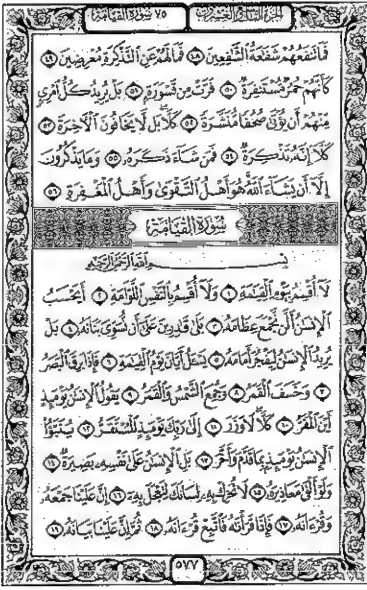 الجزء التاسع والعشرون ٧٥ سورة القيامة
فَمَا تَنفَعُهُمْ شَفَاعَةُ الشَّافِعِينَ ٤٨ فَمَا لَهُمْ عَنِ التَّذْكِرَةِ مُعْرِضِينَ ٤٩
كَأَنَّهُمْ حُمُرٌ مُّسْتَنفِرَةٌ ٥٠ فَرَّتْ مِن قَسْوَرَةٍ ٥١ بَلْ يُرِيدُ كُلُّ امْرِئٍ
مِّنْهُمْ أَن يُؤْتَىٰ صُحُفًا مُّنَشَّرَةً ٥٢ كَلَّا بَل لَّا يَخَافُونَ الْآخِرَةَ ٥٣
كَلَّا إِنَّهُ تَذْكِرَةٌ ٥٤ فَمَن شَاءَ ذَكَرَهُ ٥٥ وَمَا يَذْكُرُونَ
إِلَّا أَن يَشَاءَ اللَّهُ هُوَ أَهْلُ التَّقْوَىٰ وَأَهْلُ الْمَغْفِرَةِ ٥٦
سُورَةُ الْقِيَامَةِ
بِسْمِ اللَّهِ الرَّحْمَٰنِ الرَّحِيمِ
لَا أُقْسِمُ بِيَوْمِ الْقِيَٰمَةِ ١ وَلَا أُقْسِمُ بِالنَّفْسِ اللَّوَّامَةِ ٢ أَيَحْسَبُ
الْإِنسَٰنُ أَلَّن نَّجْمَعَ عِظَامَهُ ٣ بَلَىٰ قَٰدِرِينَ عَلَىٰ أَن نُّسَوِّيَ بَنَانَهُ ٤ بَلْ
يُرِيدُ الْإِنسَٰنُ لِيَفْجُرَ أَمَامَهُ ٥ يَسْـَٔلُ أَيَّانَ يَوْمُ الْقِيَٰمَةِ ٦ فَإِذَا بَرِقَ الْبَصَرُ
٧ وَخَسَفَ الْقَمَرُ ٨ وَجُمِعَ الشَّمْسُ وَالْقَمَرُ ٩ يَقُولُ الْإِنسَٰنُ يَوْمَئِذٍ
أَيْنَ الْمَفَرُّ ١٠ كَلَّا لَا وَزَرَ ١١ إِلَىٰ رَبِّكَ يَوْمَئِذٍ الْمُسْتَقَرُّ ١٢ يُنَبَّؤُا
الْإِنسَٰنُ يَوْمَئِذٍ بِمَا قَدَّمَ وَأَخَّرَ ١٣ بَلِ الْإِنسَٰنُ عَلَىٰ نَفْسِهِ بَصِيرَةٌ ١٤
وَلَوْ أَلْقَىٰ مَعَاذِيرَهُ ١٥ لَا تُحَرِّكْ بِهِ لِسَانَكَ لِتَعْجَلَ بِهِ ١٦ إِنَّ عَلَيْنَا جَمْعَهُ
وَقُرْءَانَهُ ١٧ فَإِذَا قَرَأْنَٰهُ فَاتَّبِعْ قُرْءَانَهُ ١٨ ثُمَّ إِنَّ عَلَيْنَا بَيَانَهُ ١٩
٥٧٧